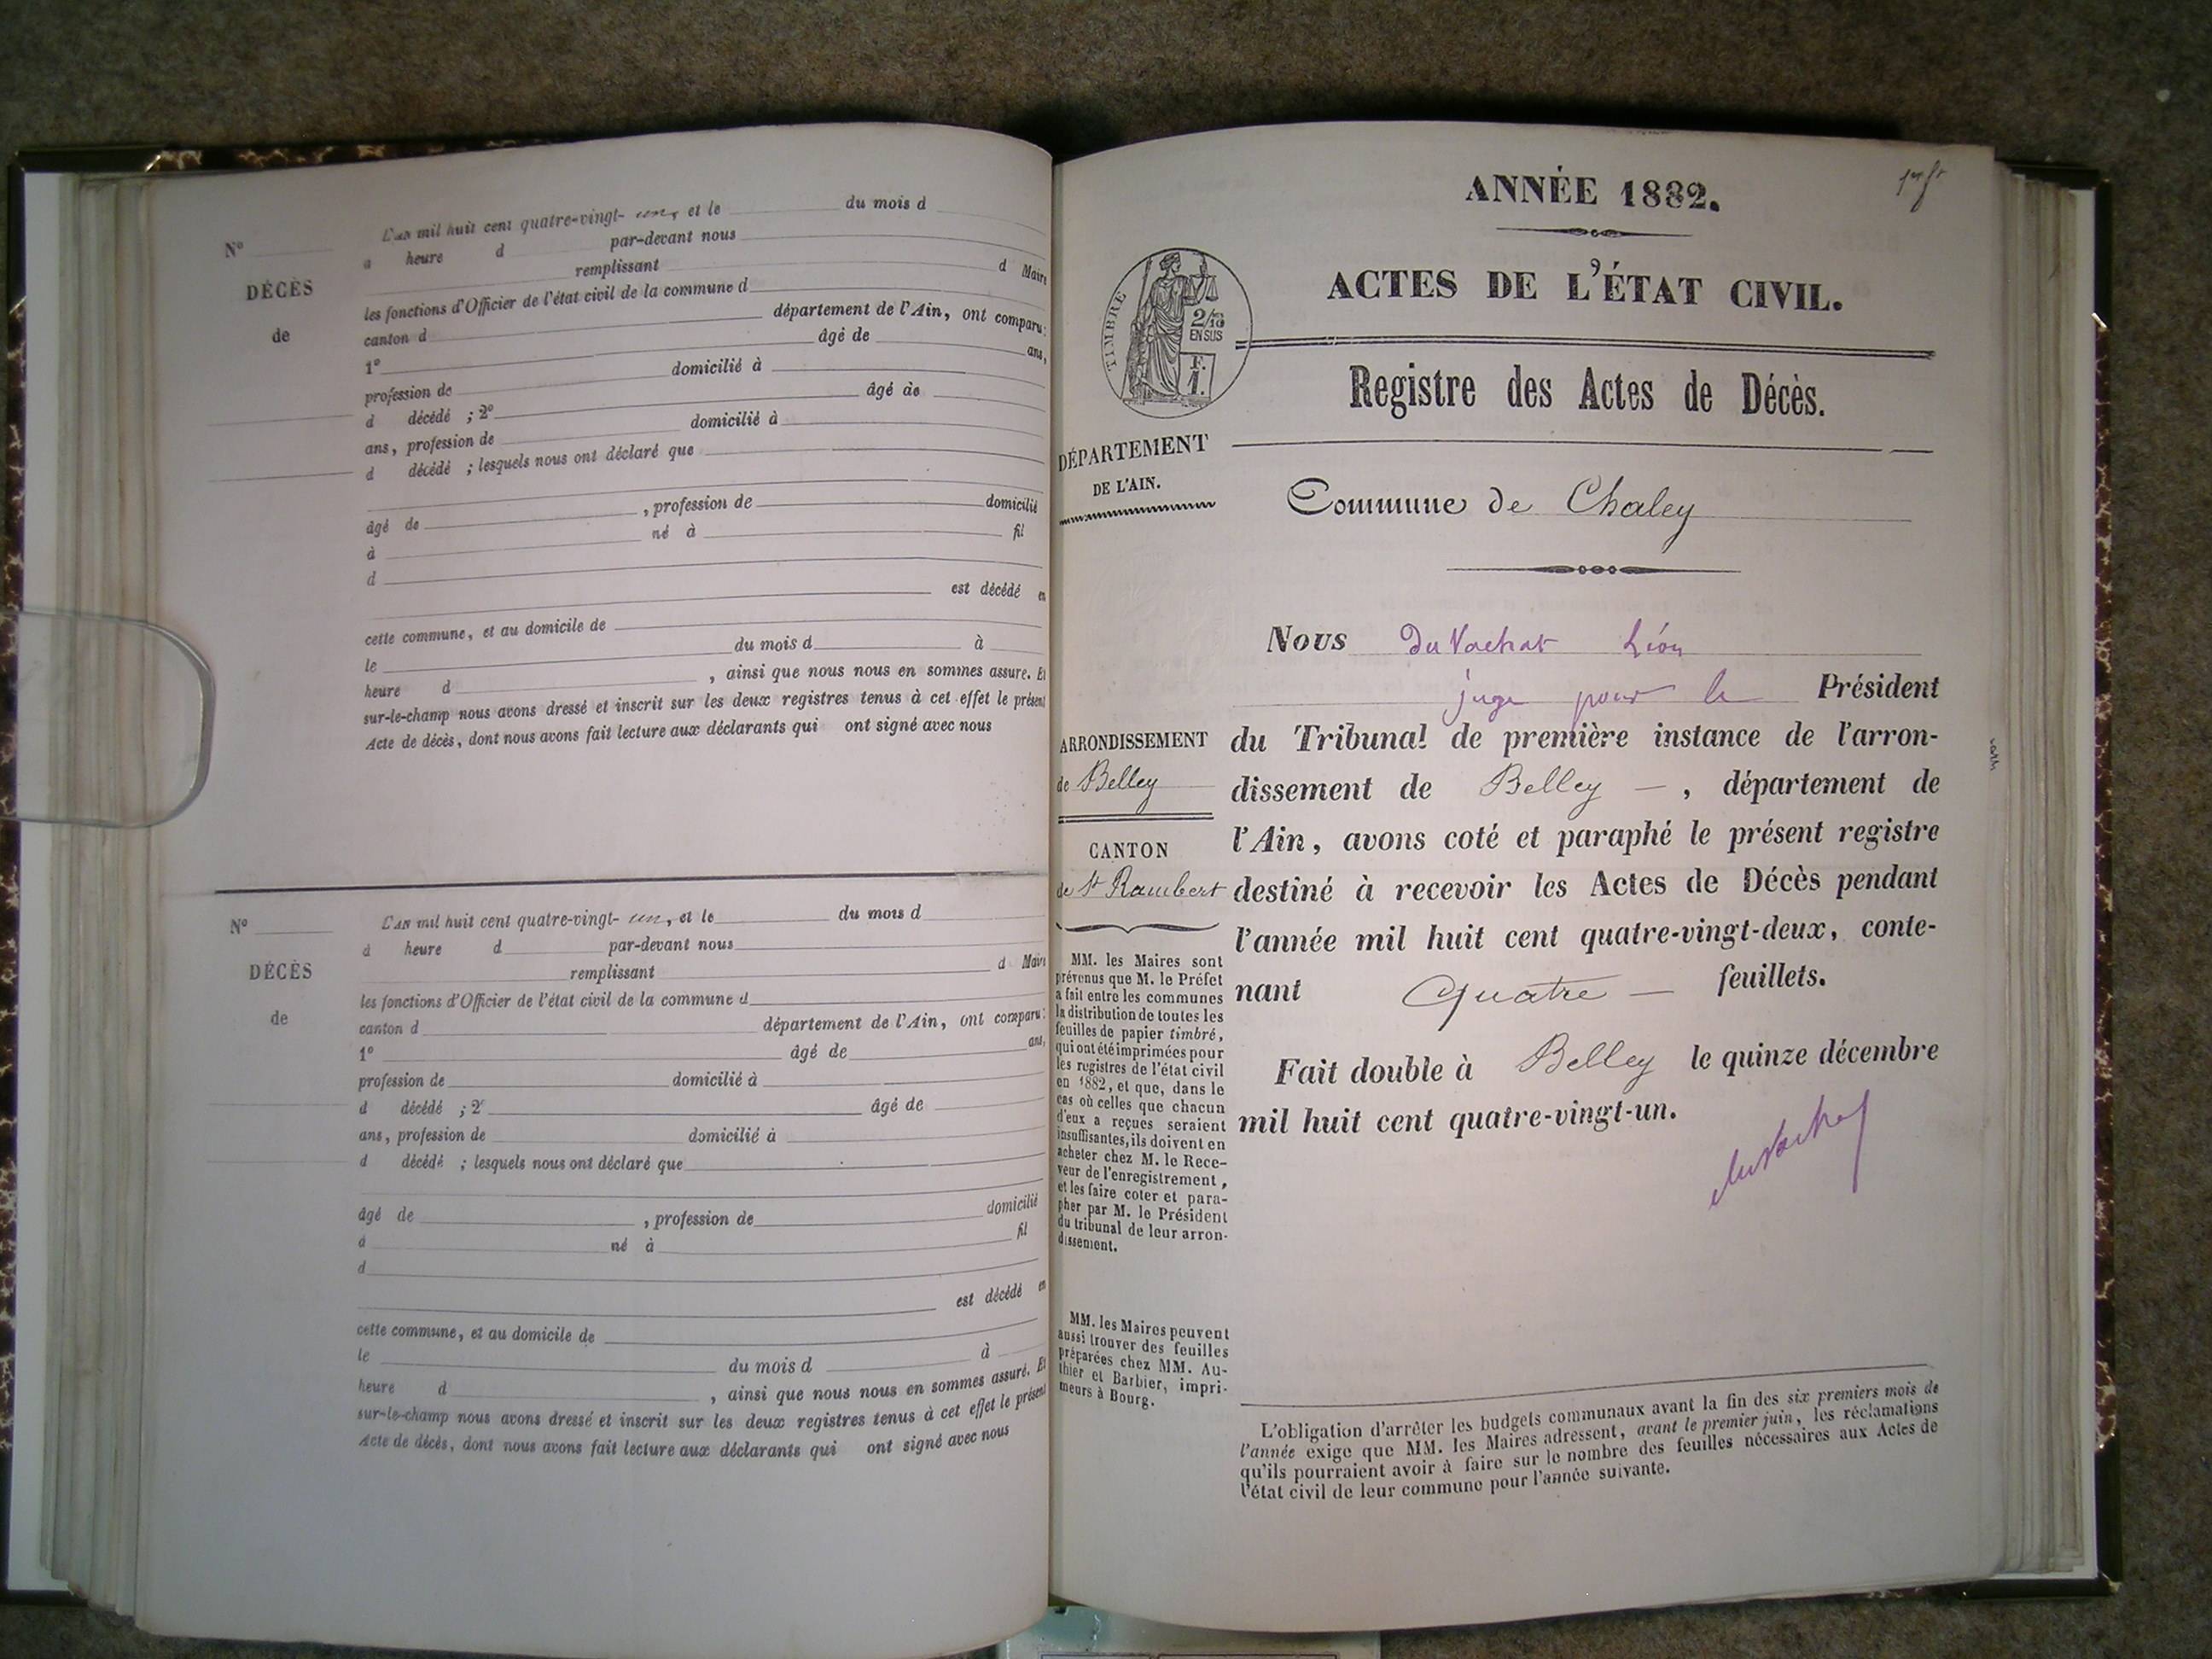 L'an mil huit cent quatre-vingt- un, et le du mois d
N° a heure d par-devant nous
remplissant d Maire
DÉCÈS les fonctions d'Officier de l'état civil de la commune d
de canton d département de l'Ain, ont comparu:
1° âgé de ans,
profession de domicilié à
d décédé ; 2° âgé de
ans, profession de domicilié à
d décédé ; lesquels nous ont déclaré que
âgé de , profession de domicilié
à né à fil
d
est décédé en
cette commune, et au domicile de
le du mois d à
heure d , ainsi que nous nous en sommes assuré. Et
sur-le-champ nous avons dressé et inscrit sur les deux registres tenus à cet effet le présent
Acte de décès, dont nous avons fait lecture aux déclarants qui ont signé avec nous
N° L'an mil huit cent quatre-vingt- un, et le du mois d
à heure d par-devant nous
DÉCÈS remplissant d Maire
les fonctions d'Officier de l'état civil de la commune d
de canton d département de l'Ain, ont comparu:
1° âgé de ans,
profession de domicilié à
d décédé ; 2° âgé de
ans, profession de domicilié à
d décédé ; lesquels nous ont déclaré que
âgé de , profession de domicilié
à né à fil
d
est décédé en
cette commune, et au domicile de
le du mois d à
heure d , ainsi que nous nous en sommes assuré. Et
sur-le-champ nous avons dressé et inscrit sur les deux registres tenus à cet effet le présent
Acte de décès, dont nous avons fait lecture aux déclarants qui ont signé avec nous
ANNÉE 1882.
ACTES DE L'ÉTAT CIVIL.
TIMBRE
2/10
EN SUS
F.
1.
Registre des Actes de Décès.
DÉPARTEMENT
DE L'AIN.
Commune de Chaley
ARRONDISSEMENT
de Belley
CANTON
de St Rambert
MM. les Maires sont
prévenus que M. le Préfet
a fait entre les communes
la distribution de toutes les
feuilles de papier timbré,
qui ont été imprimées pour
les registres de l'état civil
en 1882, et que, dans le
cas où celles que chacun
d'eux a reçues seraient
insuffisantes, ils doivent en
acheter chez M. le Rece-
veur de l'enregistrement,
et les faire coter et para-
pher par M. le Président
du tribunal de leur arron-
dissement.
MM. les Maires peuvent
aussi trouver des feuilles
préparées chez MM. Au-
thier et Barbier, impri-
meurs à Bourg.
Nous Du Vachat Léon
juge pour le Président
du Tribunal de première instance de l'arron-
dissement de Belley — , département de
l'Ain, avons coté et paraphé le présent registre
destiné à recevoir les Actes de Décès pendant
l'année mil huit cent quatre-vingt-deux, conte-
nant Quatre — feuillets.
Fait double à Belley le quinze décembre
mil huit cent quatre-vingt-un.
duVachat
L'obligation d'arrêter les budgets communaux avant la fin des six premiers mois de
l'année exige que MM. les Maires adressent, avant le premier juin, les réclamations
qu'ils pourraient avoir à faire sur le nombre des feuilles nécessaires aux Actes de
l'état civil de leur commune pour l'année suivante.